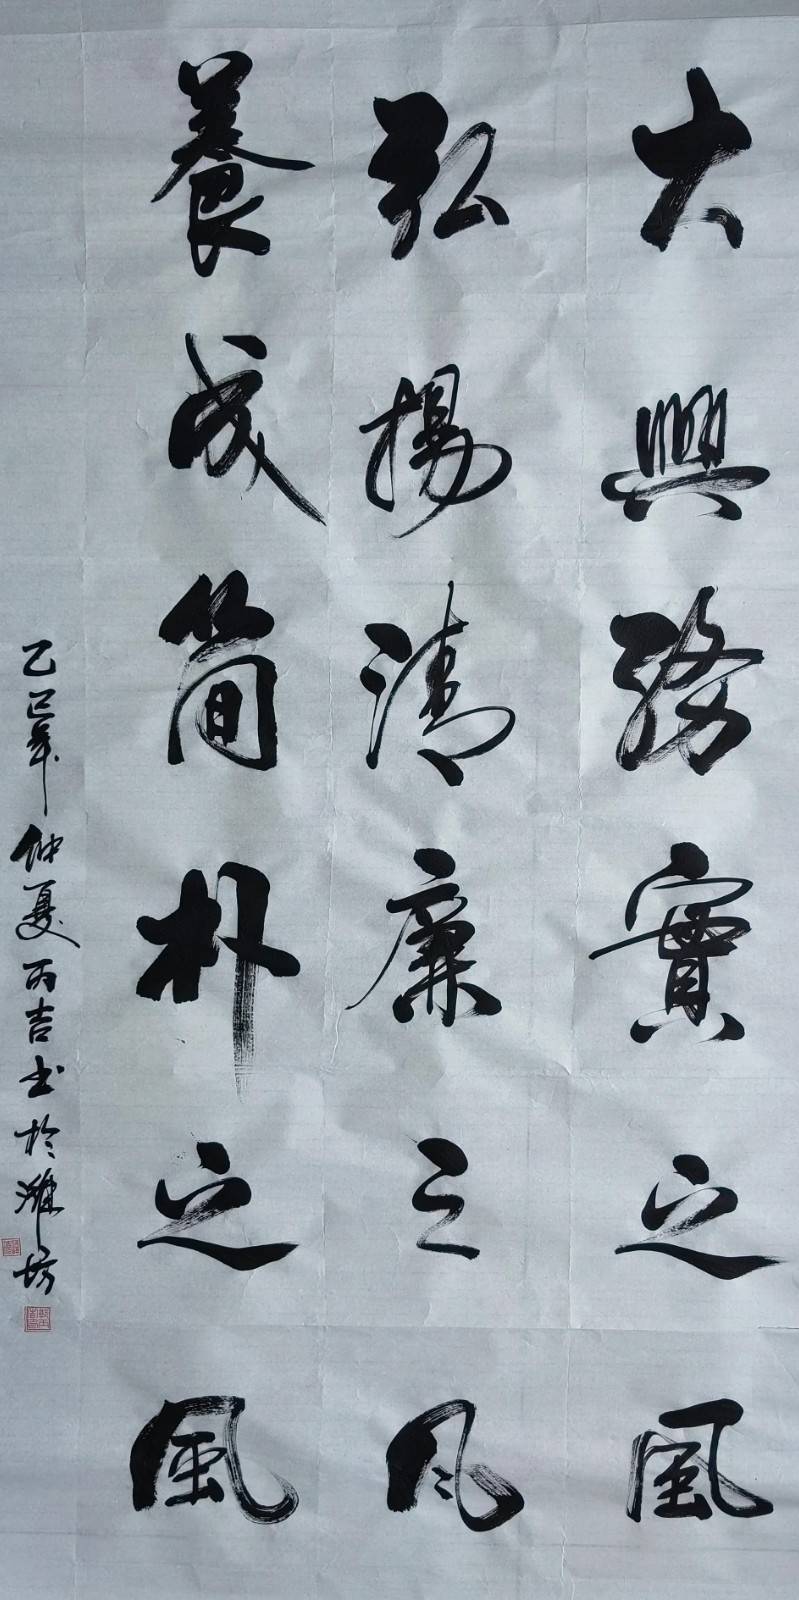 大興務實之風
弘揚清廉之风
養成简朴之風
乙巳年仲夏丙吉书於潍坊